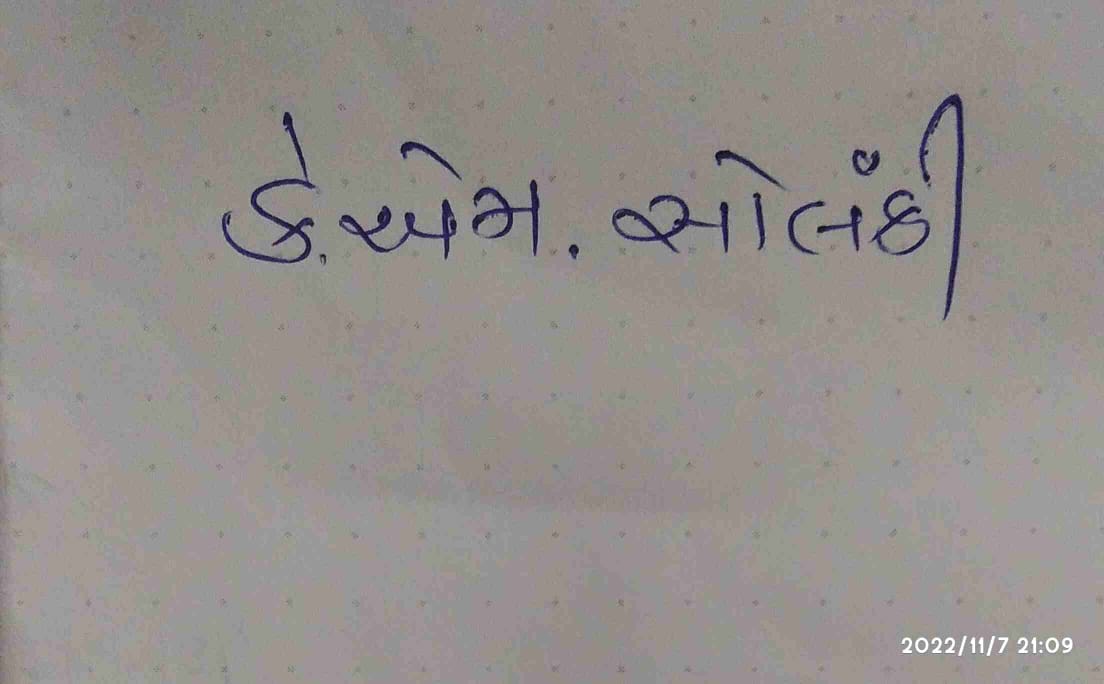 કે.એમ. સોલંકી
2022/11/7 21:09